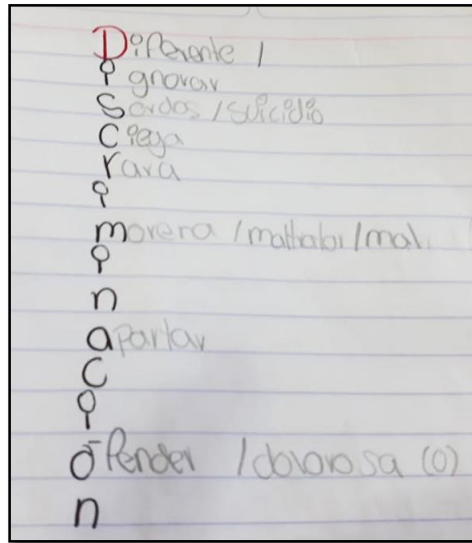 Diferente /
ignorar
Sordos / suicidio
Ciega
rara
i
morena / maltrato / mal.
i
n
apartar
C
i
ofender / dolorosa (o)
n